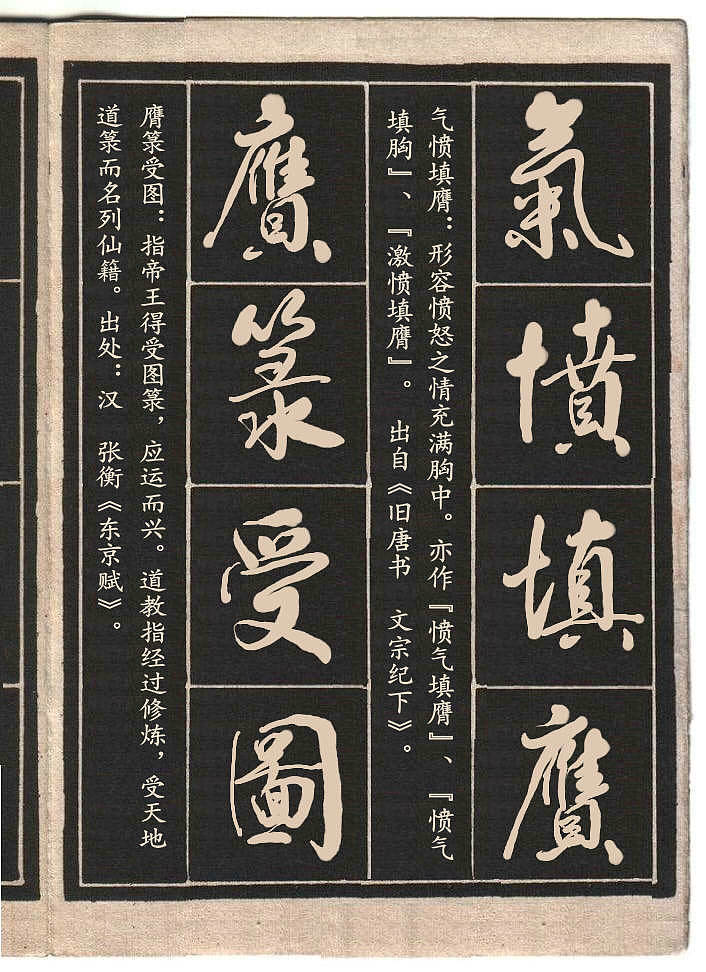 氣憤填膺
气愤填膺：形容愤怒之情充满胸中。亦作『愤气填膺』、『愤气
填胸』、『激愤填膺』。 出自《旧唐书 文宗纪下》。
膺箓受圖
膺箓受图：指帝王得受图箓，应运而兴。道教指经过修炼，受天地
道箓而名列仙籍。出处：汉 张衡《东京赋》。